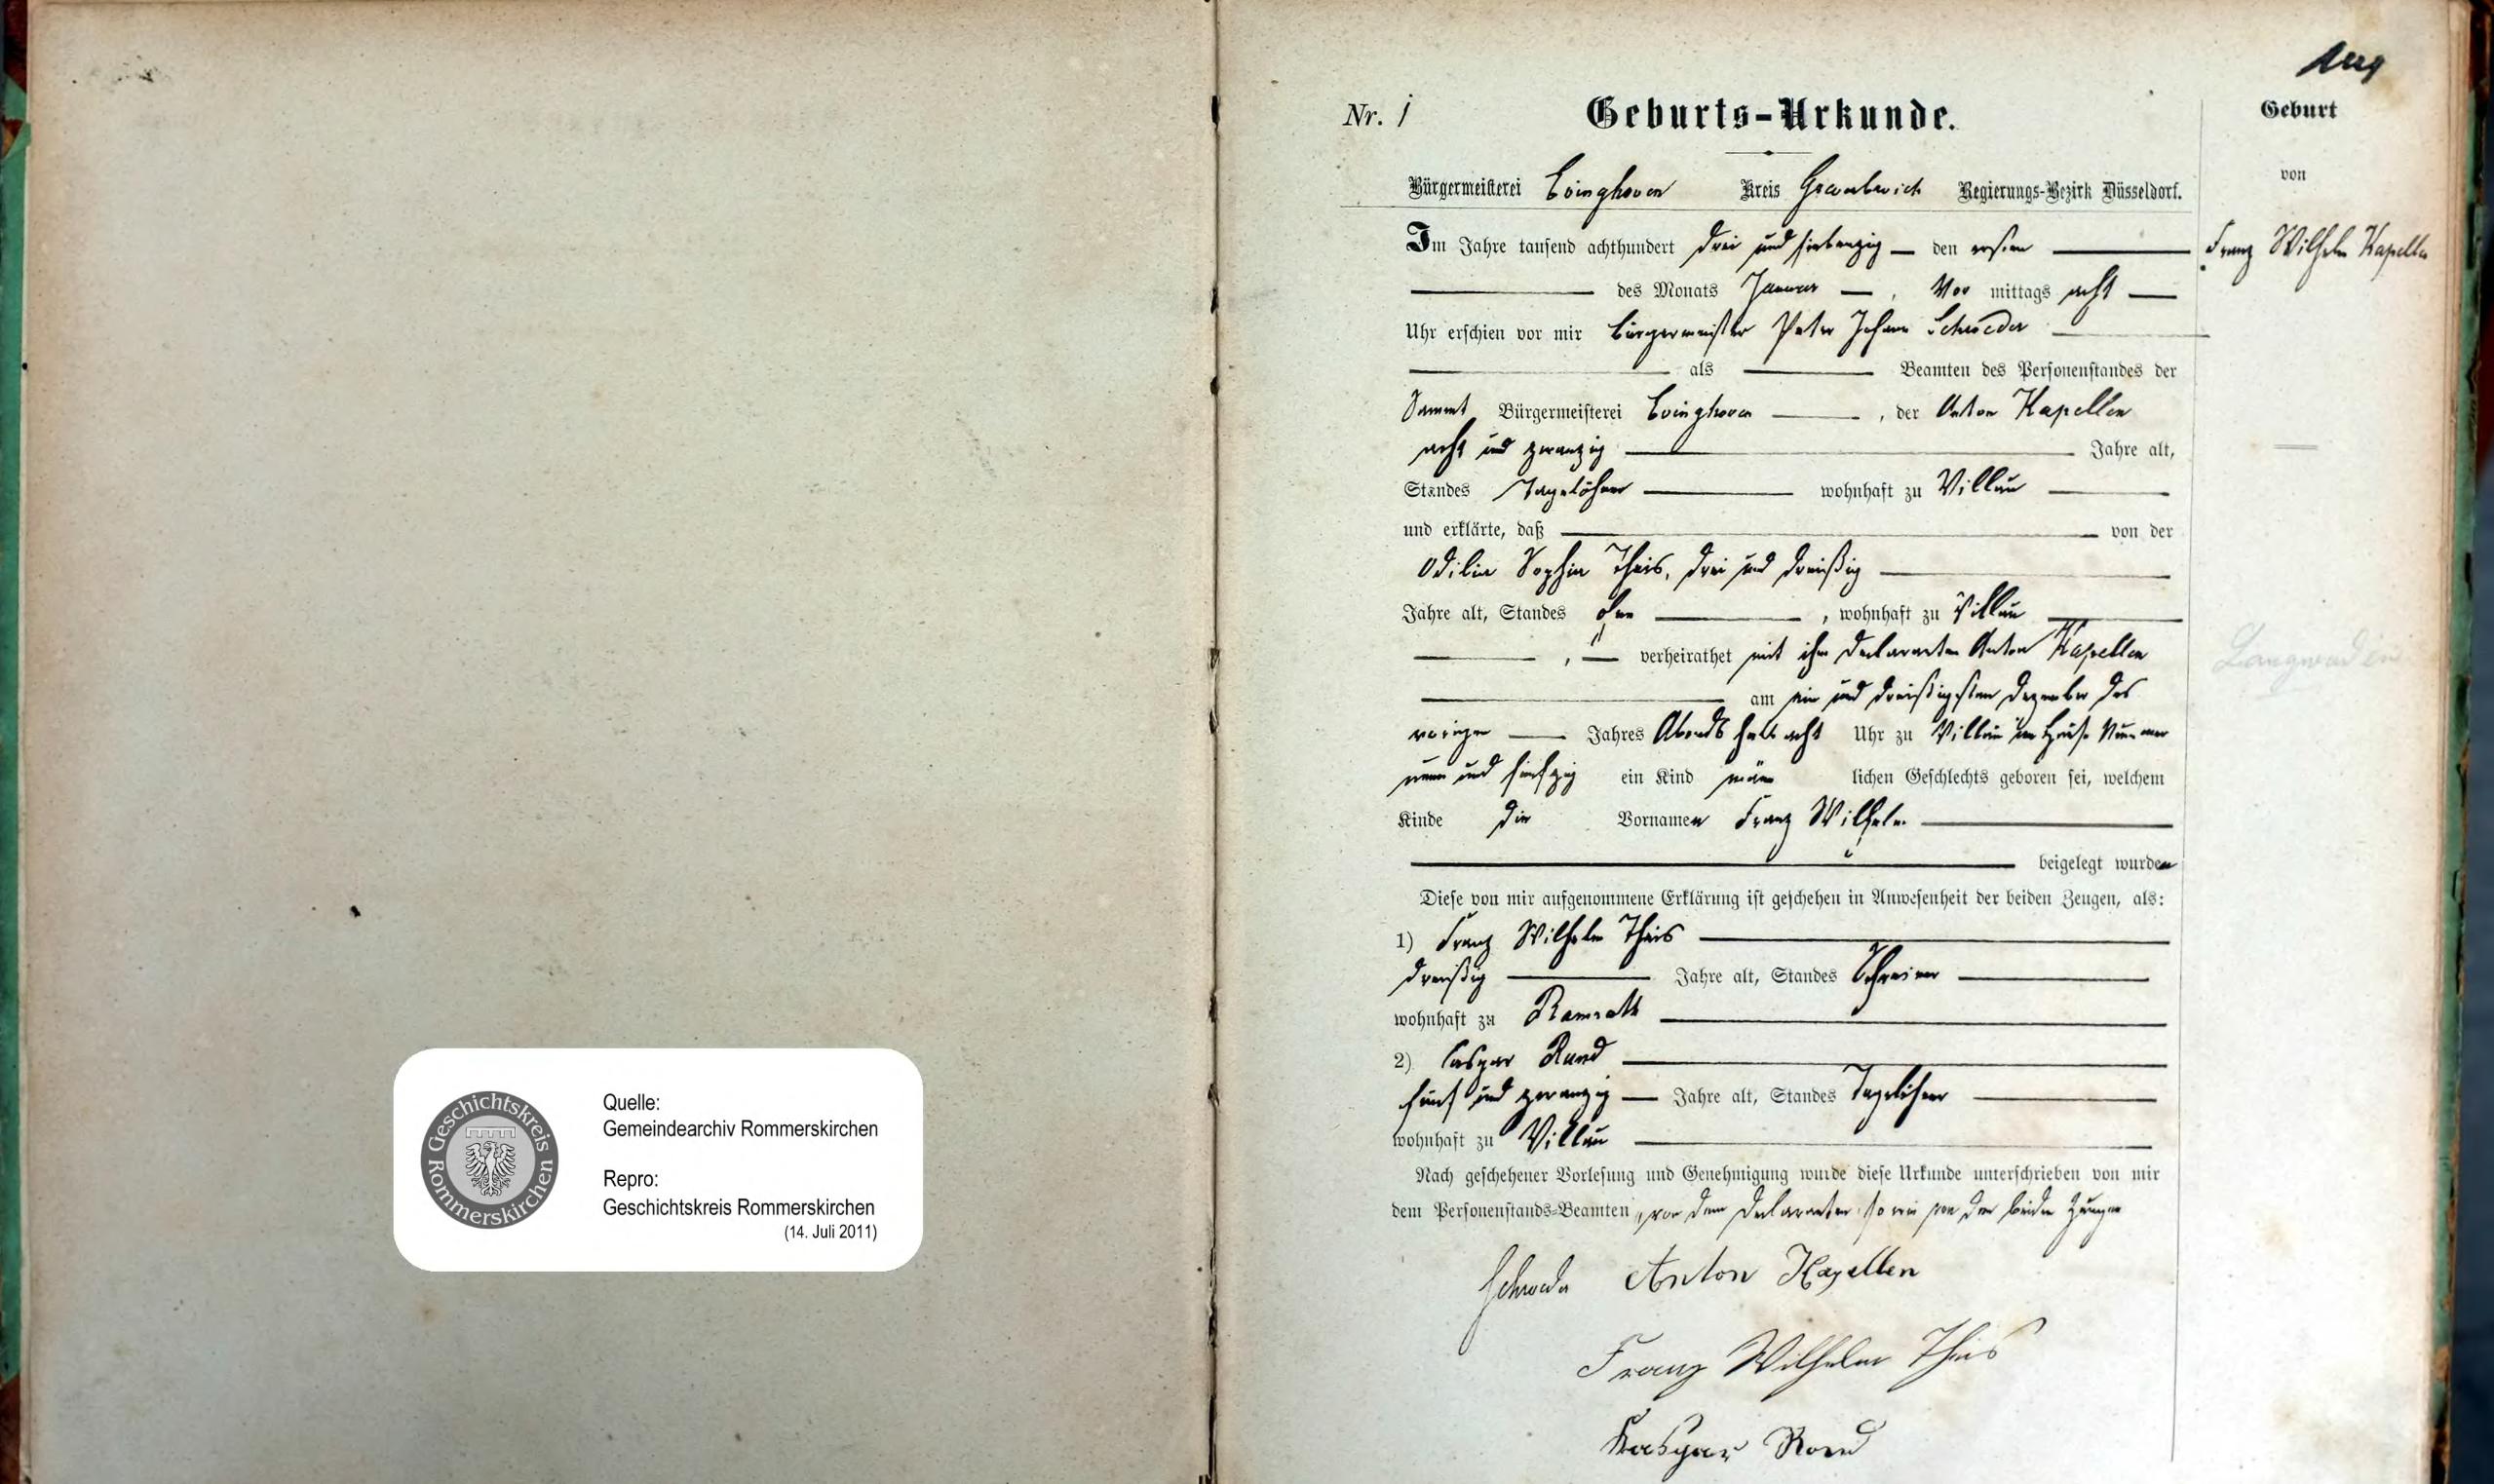 Nr. 1
Geburts-Urkunde.
Geburt
von
Franz Wilhelm Kapellen
Bürgermeisterei Evinghoven Kreis Grevenbroich Regierungs-Bezirk Düsseldorf.
Im Jahre tausend achthundert drei und siebenzig den ersten
des Monats Januar, Vor mittags acht
Uhr erschien vor mir Bürgermeister Peter Johann Schroeder
als Beamten des Personenstandes der
Sammt Bürgermeisterei Evinghoven, der Anton Kapellen
acht und zwanzig Jahre alt,
Standes Tagelöhner wohnhaft zu Villau
und erklärte, daß von der
Odilia Sophia Theis, drei und dreißig
Jahre alt, Standes ohne, wohnhaft zu Villau
, verheirathet mit ihm Declaranten Anton Kapellen
Langwaden
am ein und dreißigsten Dezember des
vorigen Jahres Abends halb acht Uhr zu Villau im Hause Nummer
neun und fünfzig ein Kind männ lichen Geschlechts geboren sei, welchem
Kinde die Vornamen Franz Wilhelm
beigelegt wurden
Diese von mir aufgenommene Erklärung ist geschehen in Anwesenheit der beiden Zeugen, als:
1) Franz Wilhelm Theis
dreißig Jahre alt, Standes Schreiner
wohnhaft zu Ramrath
2) Caspar Rund
fünf und zwanzig Jahre alt, Standes Tagelöhner
wohnhaft zu Villau
Nach geschehener Vorlesung und Genehmigung wurde diese Urkunde unterschrieben von mir
dem Personenstands-Beamten, von dem Declaranten so wie von den beiden Zeugen
Schroeder Anton Kapellen
Franz Wilhelm Theis
Kaspar
Geschichtskreis Rommerskirchen
Quelle:
Gemeindearchiv Rommerskirchen
Repro:
Geschichtskreis Rommerskirchen
(14. Juli 2011)